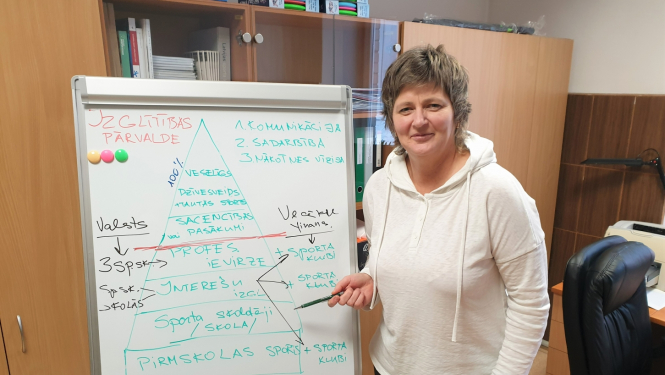 IZGLĪTĪBAS
PĀRVALDE
1. KOMUNIKĀCIJA
2. SADARBĪBA
3. NĀKOTNES VĪZIJA
100%
VESELĪGS
DZĪVESVEIDS
TAUTAS SPORTS
SACENSĪBAS
vai PASĀKUMI
Valsts
3 SPSK
Sp.sk.
SKOLĀS
PROFES
IEVIRZE
INTEREŠU
IZGL
Sporta skolotāji
/SKOLA/
PIRMSKOLAS SPORTS
Vecāku
finans.
+ SPORTA
KLUBI
+ SPORTA
KLUBI
+ SPORTA
KLUBI